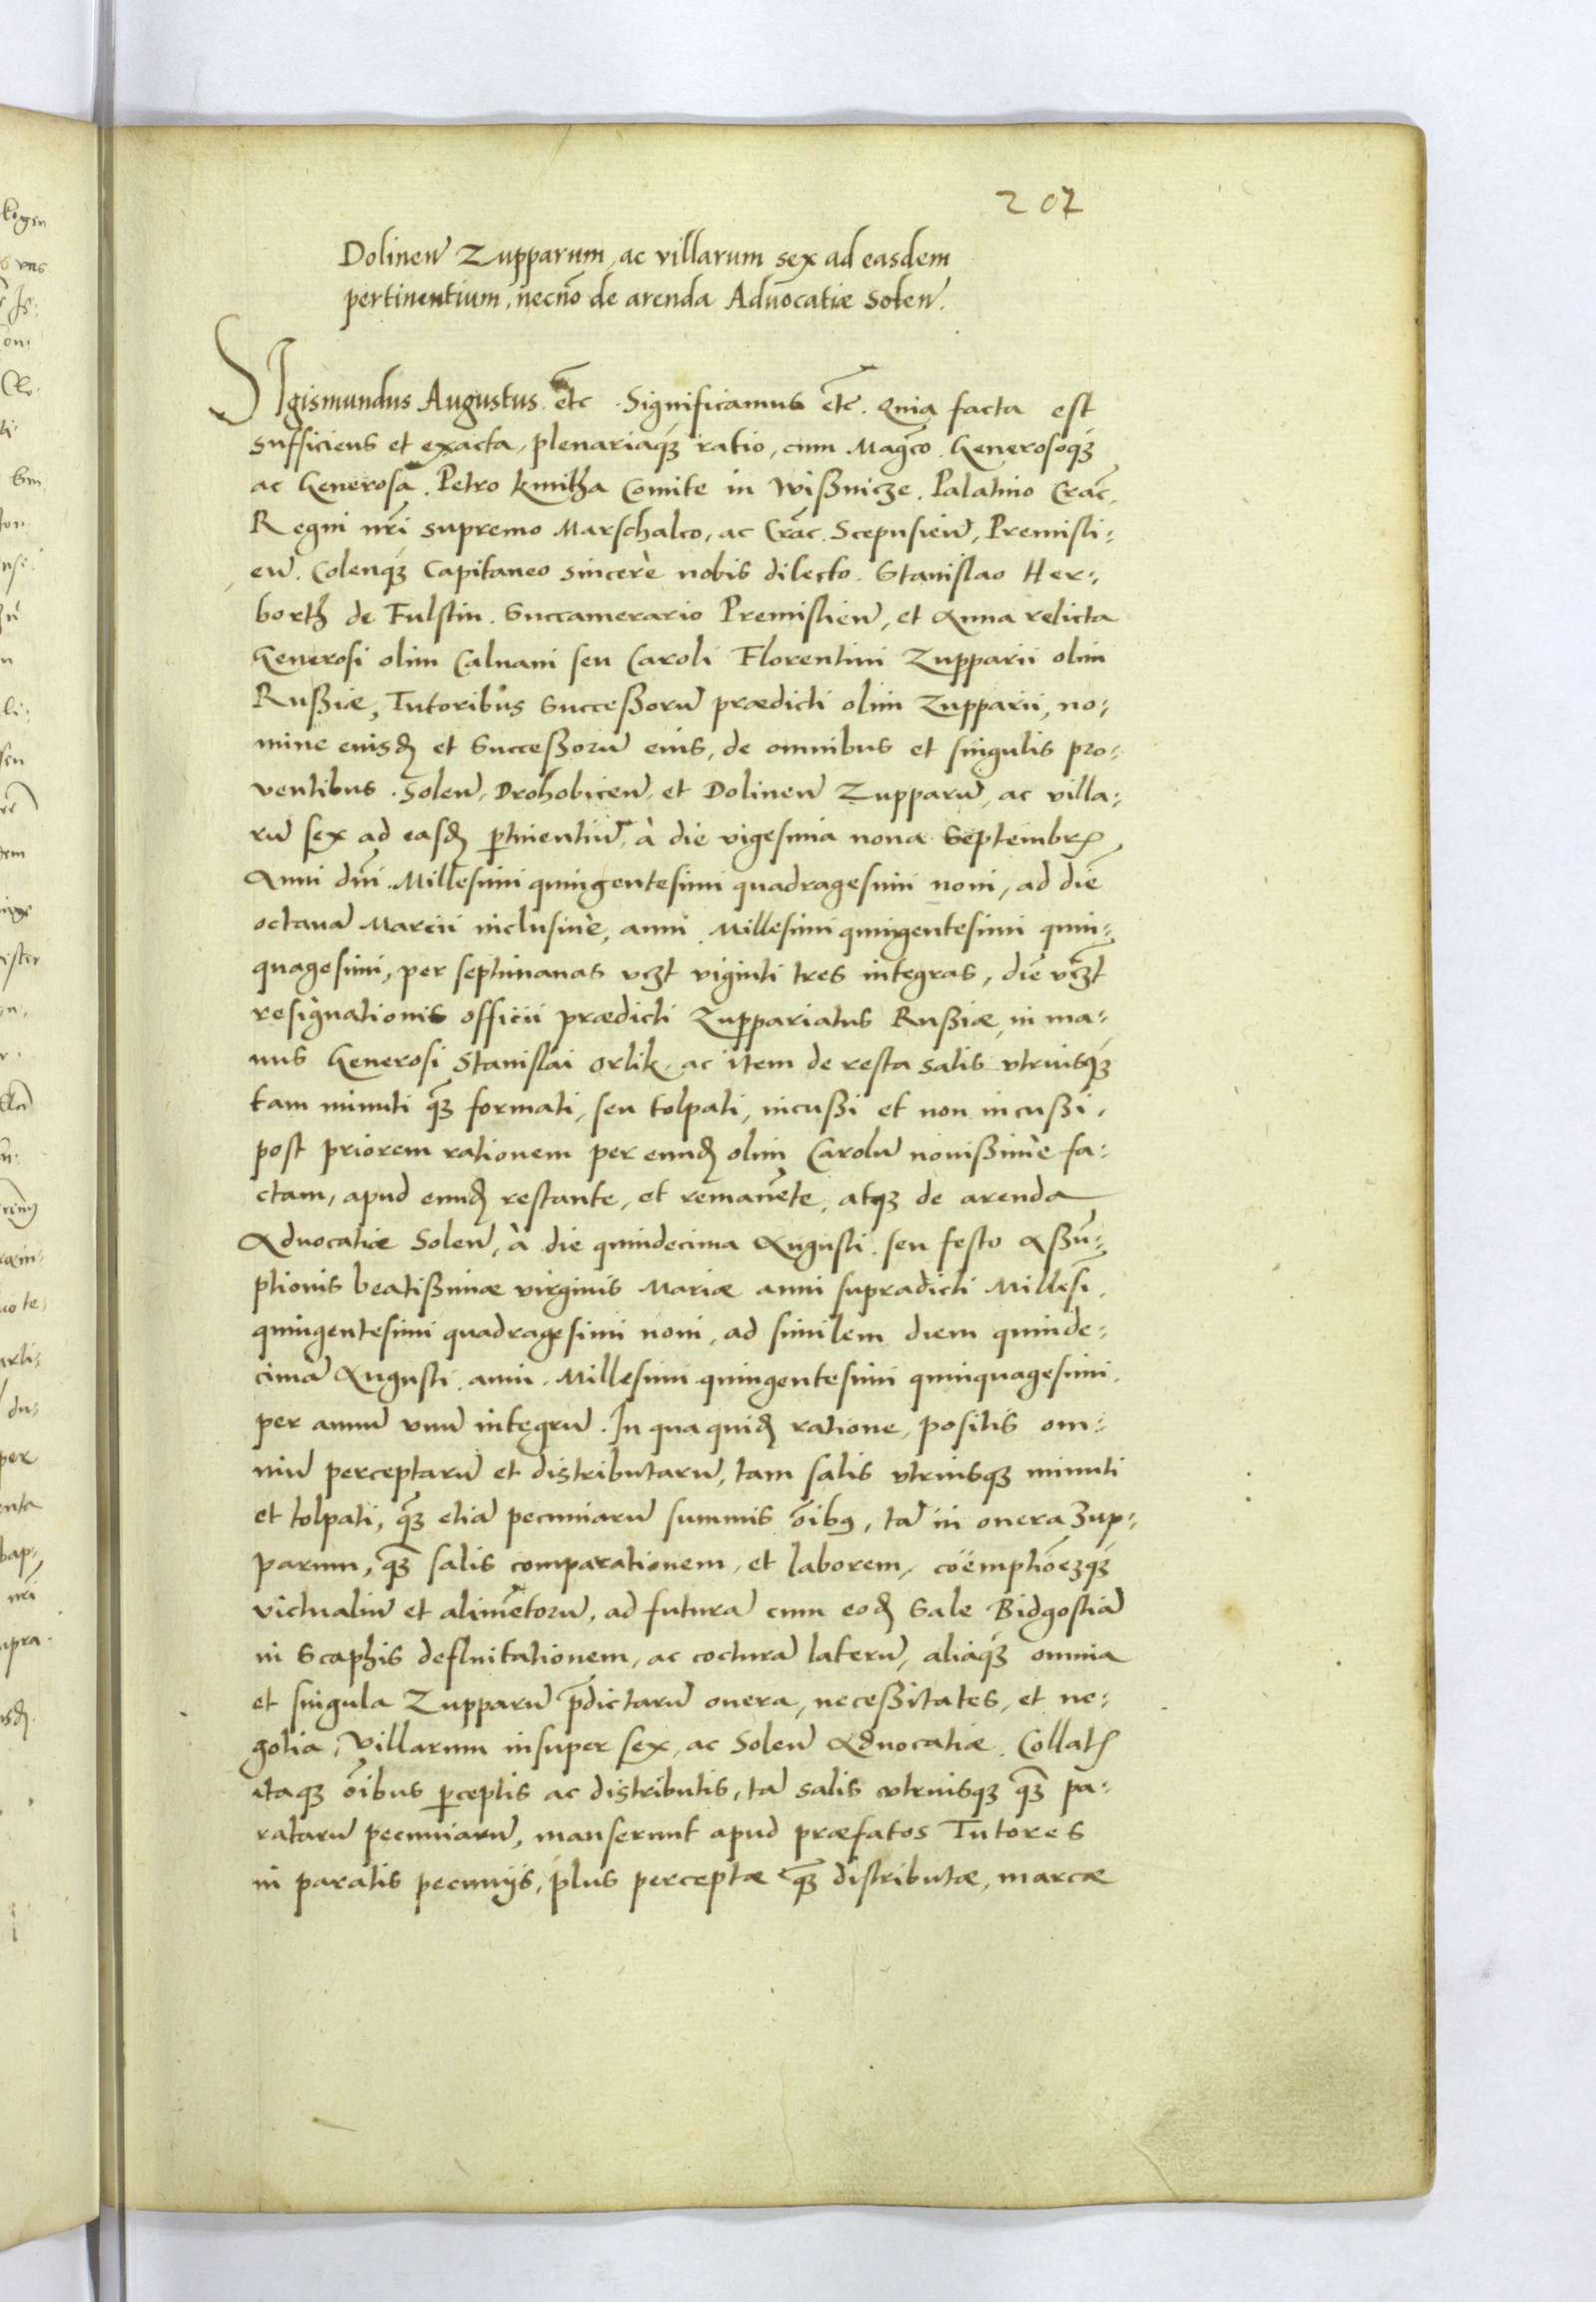 207
Dolinen̄ Zupparum, ac villarum sex ad easdem
pertinentium, necnō de arenda Aduocatiæ Solen̄.
SIgismundus Augustus etc̄. Significamus etc̄. Quia facta est
sufficiens et exacta, plenariaqꝫ ratio, cum Magco. Generosoqꝫ
ac Generosa. Petro kmitha Comite in Wißnicze. Palatino Crac̄.
Regni nr̄i supremo Marschalco, ac Crac̄. Scepusien̄, Premisli:
en̄. Colenqꝫ Capitaneo sincerè nobis dilecto. Stanislao Her:
borth de Fulstin. Succamerario Premislien̄, et Anna relicta
Generosi olim Caluani seu Caroli Florentini Zupparii olim
Rußiæ, Tutoribus Succeßorū prædicti olim Zupparii, no:
mine eiusd̄ et Succeßorū eius, de omnibus et singulis pro:
ventibus. Solen̄, Drohobicen̄, et Dolinen̄ Zupparū, ac villa:
rū sex ad easd̄ ꝑtinentiū, à die vigesima nona Septembrꝭ
Anni dn̄i Millesimi quingentesimi quadragesimi noni, ad diē
octauā Marcii inclusiue, anni Millesimi quingentesimi quin:
quagesimi, per septimanas vcꝫt viginti tres integras, diē vcꝫt
resignationis officii prædicti Zuppariatus Rußiæ, in ma:
nus Generosi Stanislai Orlik, ac item de resta salis vtriusqꝫ
tam minuti q̄ꝫ formati, seu tolpati, incußi et non incußi,
post priorem rationem per eund̄ olim Carolū nouißimè fa:
ctam, apud eund̄ restante, et remanēte, atqꝫ de arenda
Aduocatiæ Solen̄, à die quindecima Augusti. seu festo Aßū:
ptionis beatißimæ virginis Mariæ anni supradicti Millesi.
quingentesimi quadragesimi noni, ad similem diem quinde:
cimā Augusti anni. Millesimi quingentesimi quinquagesimi.
per annū vnū integrū. In qua quid̄ ratione, positis om:
niū perceptarū et distributarū, tam salis vtriusqꝫ minuti
et tolpati, q̄ꝫ etiā pecuniarū summis ōibꝰ, tā in onera Zup:
parum, q̄ꝫ salis comparationem, et laborem, coëmptiōeꝫqꝫ
victualiū et alimētorū, ad futurā cum eod̄ Sale Bidgostiā
in Scaphis defluitationem, ac cocturā laterū, aliaqꝫ omnia
et singula Zupparū p̄dictarū onera, neceßitates, et ne:
gotia, Villarum insuper sex, ac Solen̄ Aduocatiæ. Collatꝭ
itaqꝫ ōibus ꝑceptis ac distributis, tā salis vtriusqꝫ q̄ꝫ pa:
ratarū pecuniarū, manserunt apud præfatos Tutores
in paratis pecuniis, plus perceptæ q̄ꝫ distributæ, marcæ